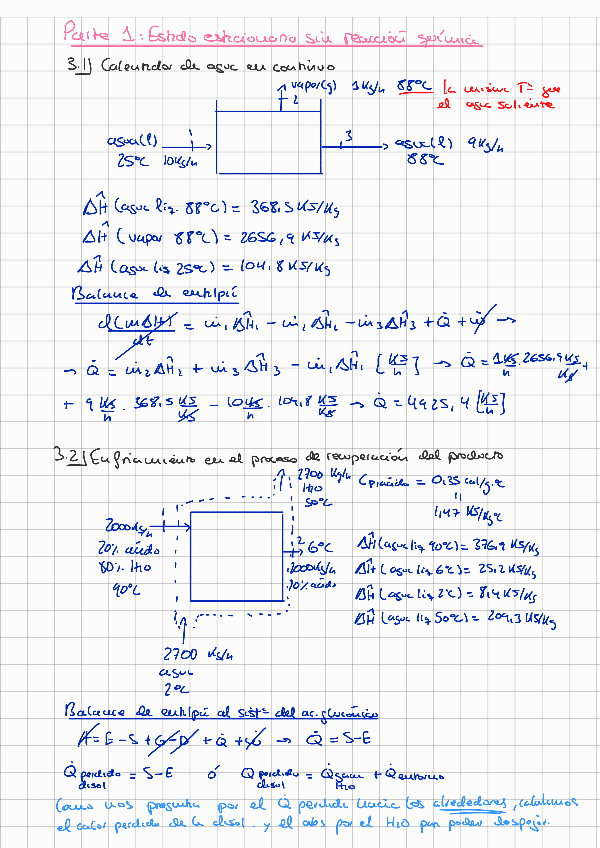 Parte 1: Estado estacionario sin reacción química
3.1) Calentador de agua en continuo
vapor(g) 1 Kg/h 88ºC la misma Tª que
2 el agua saliente
agua(l) 1 3 agua(l) 9 Kg/h
25ºC 10 Kg/h 88ºC
ΔĤ (agua liq. 88ºC) = 368,5 KJ/Kg
ΔĤ (vapor 88ºC) = 2656,9 KJ/Kg
ΔĤ (agua liq 25ºC) = 104,8 KJ/Kg
Balance de entalpía
d(mΔH)/dt = ṁ1 ΔĤ1 - ṁ2 ΔĤ2 - ṁ3 ΔĤ3 + Q̇ + Ẇ →
→ Q̇ = ṁ2 ΔĤ2 + ṁ3 ΔĤ3 - ṁ1 ΔĤ1 [KJ/h] → Q̇ = 1 Kg/h · 2656,9 KJ/Kg +
+ 9 Kg/h · 368,5 KJ/Kg - 10 Kg/h · 104,8 KJ/Kg → Q̇ = 4925,4 [KJ/h]
3.2) Enfriamiento en el proceso de recuperación del producto
2700 Kg/h Cp ácido = 0,35 cal/g·ºC
H2O
50ºC 1,47 KJ/KgºC
2000 Kg/h 2 6ºC
20% ácido 2000 Kg/h
80% H2O 20% ácido
90ºC
ΔĤ (agua liq 90ºC) = 376,9 KJ/Kg
ΔĤ (agua liq 6ºC) = 25,2 KJ/Kg
ΔĤ (agua liq 2ºC) = 8,4 KJ/Kg
ΔĤ (agua liq 50ºC) = 209,3 KJ/Kg
2700 Kg/h
agua
2ºC
Balance de entalpía al sistª del ac. glucónico
A = E - S + G - D + Q̇ + Ẇ → Q̇ = S-E
Q̇ perdido disol = S-E ó Q perdido disol = Q̇ganar H2O + Q̇entorno
Como nos pregunta por el Q̇ perdido hacia los alrededores, calculamos
el calor perdido de la disol. y el abs por el H2O para poder despejar.